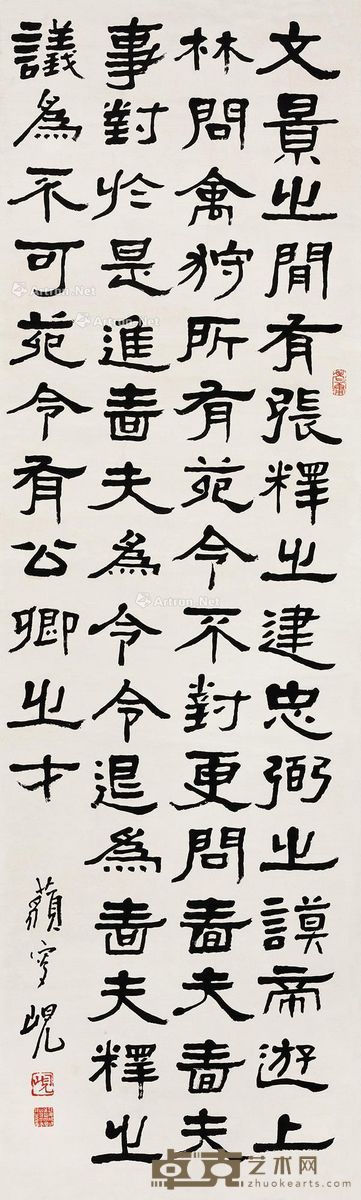 文景之間有張釋之建忠弼之謨帝遊上
林問禽狩所有苑令不對更問嗇夫嗇夫
事對於是進嗇夫為令令退為嗇夫釋之
議為不可苑令有公卿之才
峴
Artron.Net
Artron.Net
Artron.Net
Artron.Net
卓克艺术网
zhuokearts.com